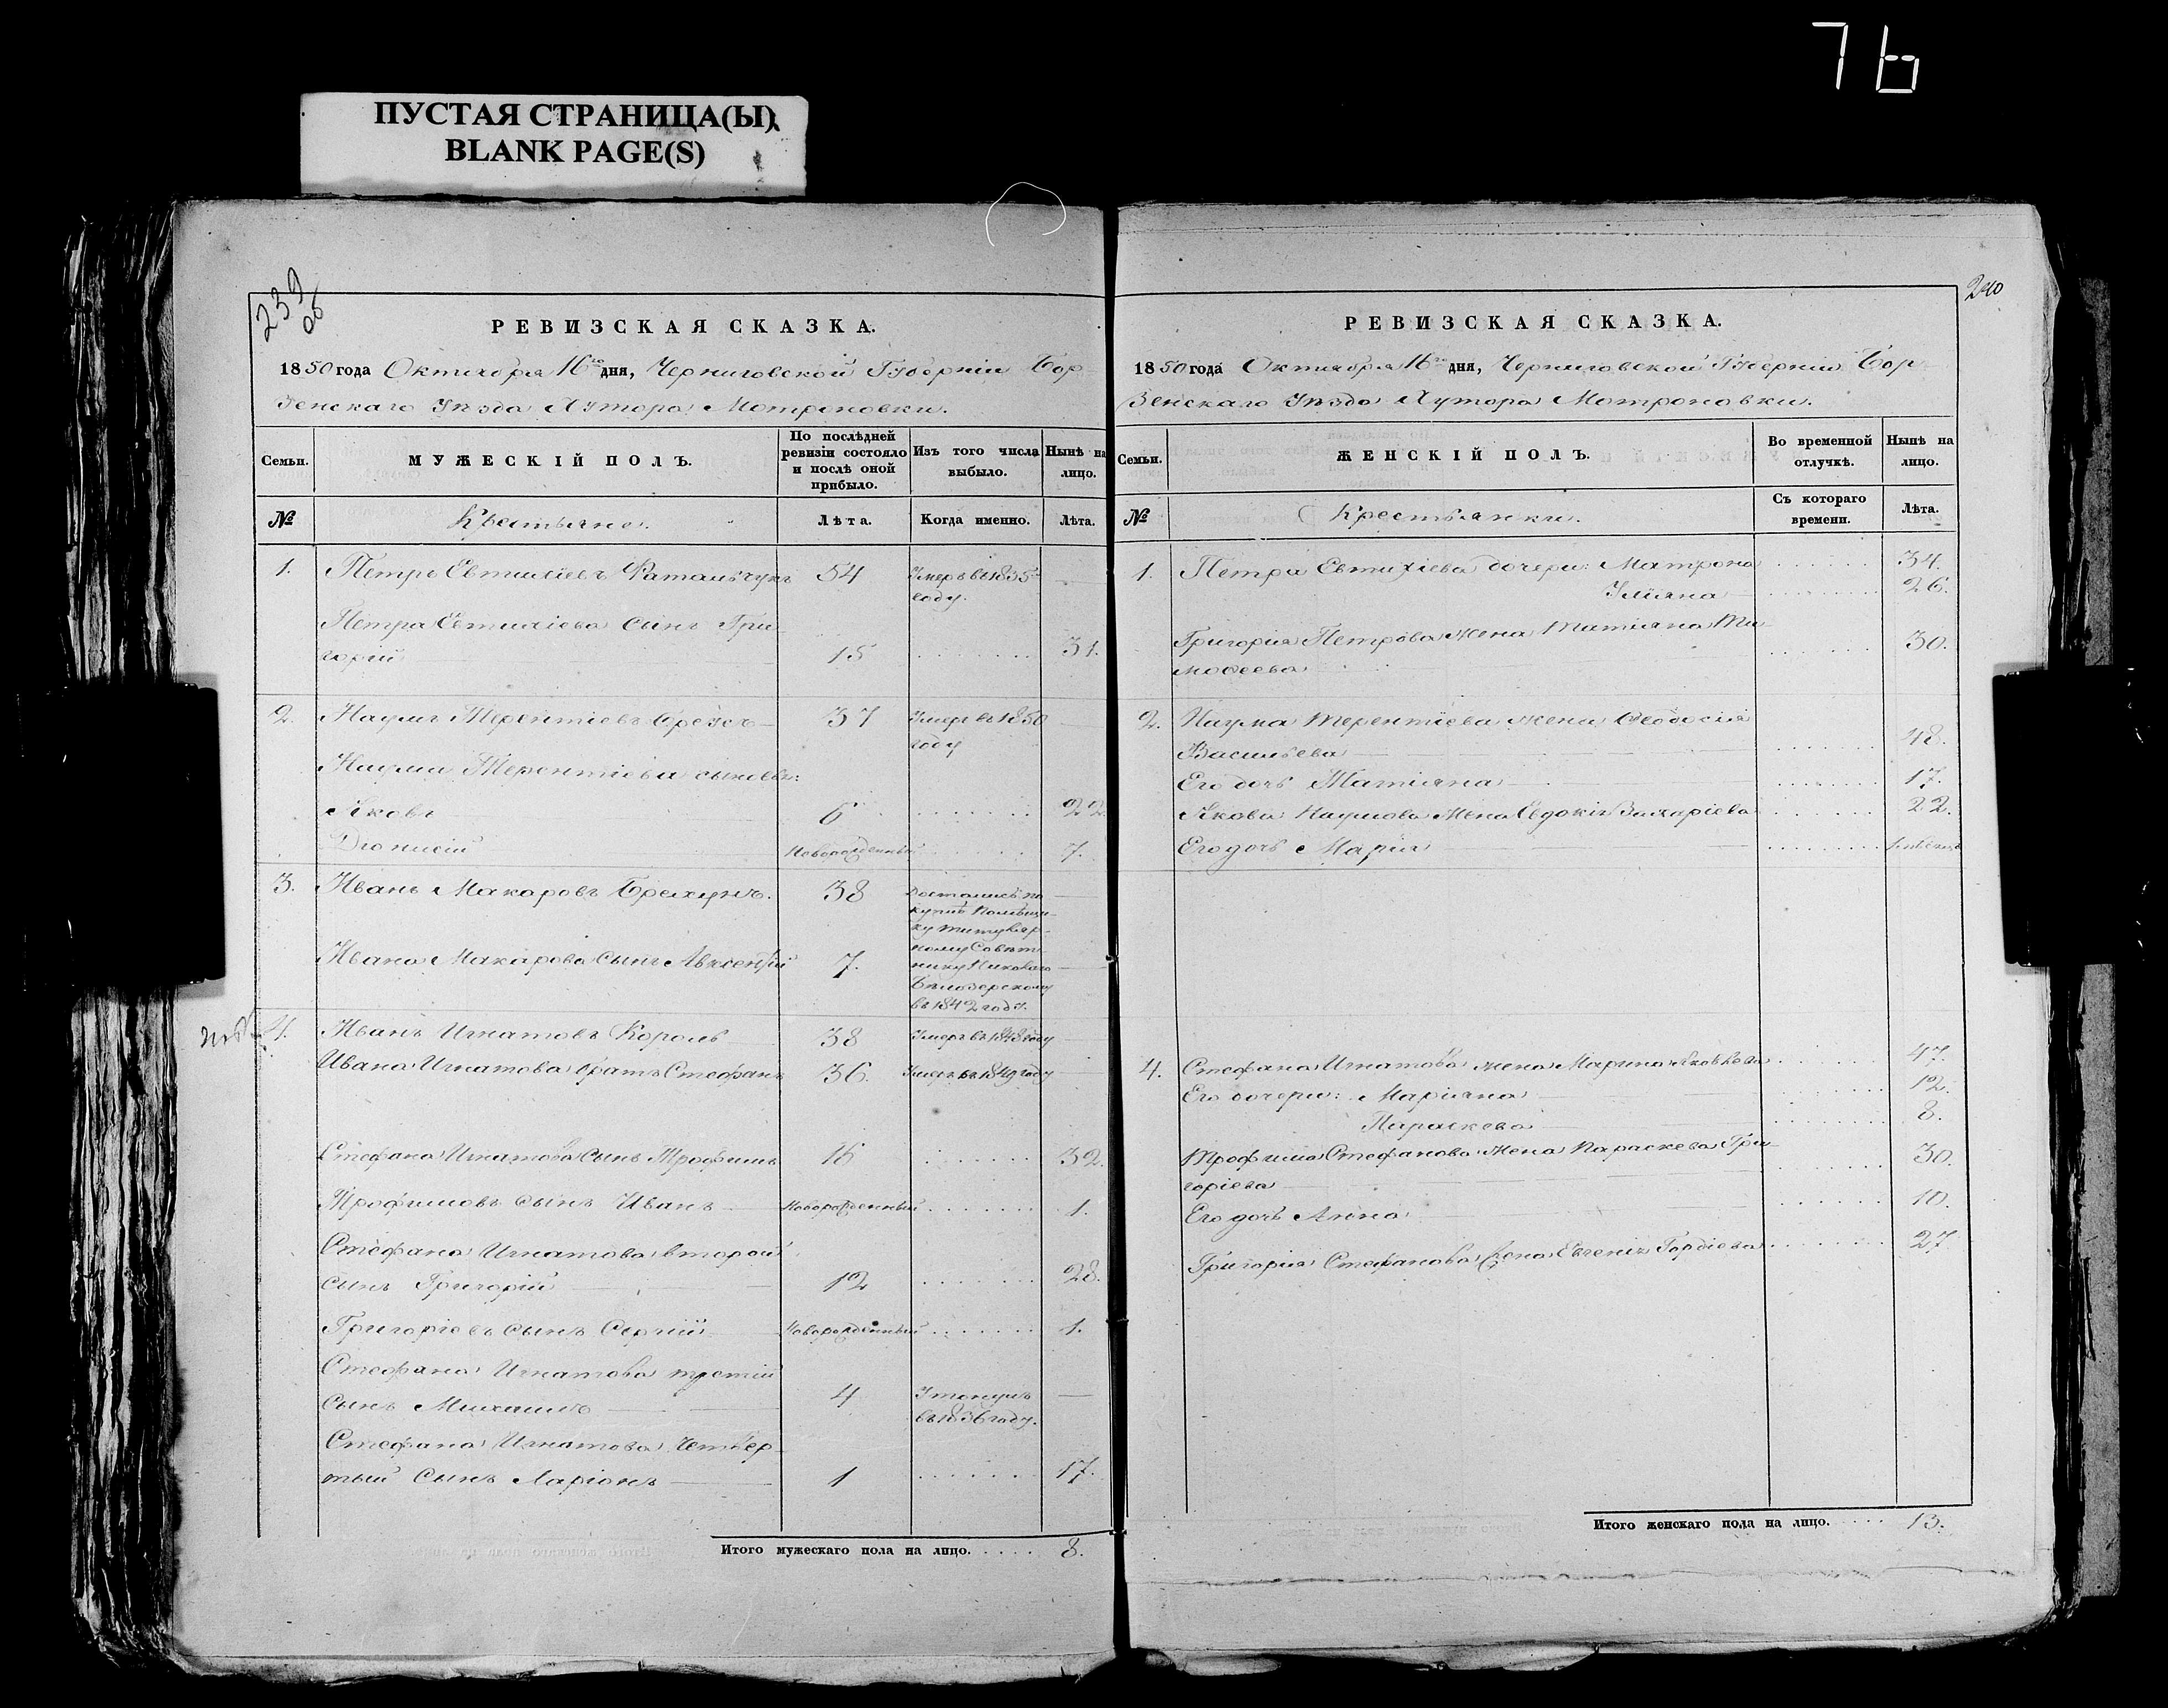 76
ПУСТАЯ СТРАНИЦА(Ы)
BLANK PAGE(S)
239
об
РЕВИЗСКАЯ СКАЗКА.
1850 года Октября 16го дня, Черниговской Губерніи Бор-
зенскаго Уѣзда Хутора Мотроновки.
Семьи.
МУЖЕСКІЙ ПОЛЪ.
По послѣдней ревизіи состояло и послѣ оной прибыло.
Изъ того числа выбыло.
Нынѣ на лицо.
№
Крестьяне.
Лѣта.
Когда именно.
Лѣта.
1. Петръ Евтихіевъ 54 Умеръ въ 1835
году.
Петра Евтихіева сынъ Гри-
горій 15 31.
2. Наумъ Терентіевъ 37 Умеръ въ 1850
году
Наума Терентіева сыновья:
Яковъ 6 22
Діонисій Новорожденный 7.
3. Иванъ Макаровъ Брехунъ. 38 Достались по
купкѣ Помѣщи-
ку Титуляр-
ному Совѣт-
Ивана Макарова сынъ Авксентій 7. нику Николаю
Бѣлозерскому
въ 1842 году.
4. Иванъ Игнатовъ Король 38 Умеръ въ 1848 году
Ивана Игнатова братъ Стефанъ 36. Умеръ въ 1849 году
Стефана Игнатова сынъ Трофимъ 16 32.
Трофимовъ сынъ Иванъ Новорожденный 1.
Стефана Игнатова второй
сынъ Григорій 12 28.
Григоріевъ сынъ Сергій Новорожденный 1.
Стефана Игнатова третій
сынъ Михаилъ 4 Утонулъ
въ 1836 году.
Стефана Игнатова четвер-
тый сынъ Ларіонъ 1 17.
Итого мужескаго пола на лицо. 8.
240
РЕВИЗСКАЯ СКАЗКА.
1850 года Октября 16го дня, Черниговской Губерніи Бор-
зенскаго Уѣзда Хутора Мотроновки.
Семьи.
ЖЕНСКІЙ ПОЛЪ.
Во временной отлучкѣ.
Нынѣ на лицо.
№
Крестьянки.
Съ котораго времени.
Лѣта.
1. Петра Евтихіева дочери: Матрона 34.
Уліяна 26.
Григорія Петрова жена Татіяна Ти-
мофеева 30.
2. Наума Терентіева жена Феодосія
Васильева 48.
Его дочь Татіяна 17.
Якова Наумова жена Евдокія Захаріева 22.
Его дочь Марія
4. Стефана Игнатова жена Марина Яковлева 47.
Его дочери: Маріяна 12.
Параскева 8.
Трофима Стефанова жена Параскева Гри-
горіева 30.
Его дочь Анна 10.
Григорія Стефанова жена Евгенія Гордіева 27
Итого женскаго пола на лицо. 13.